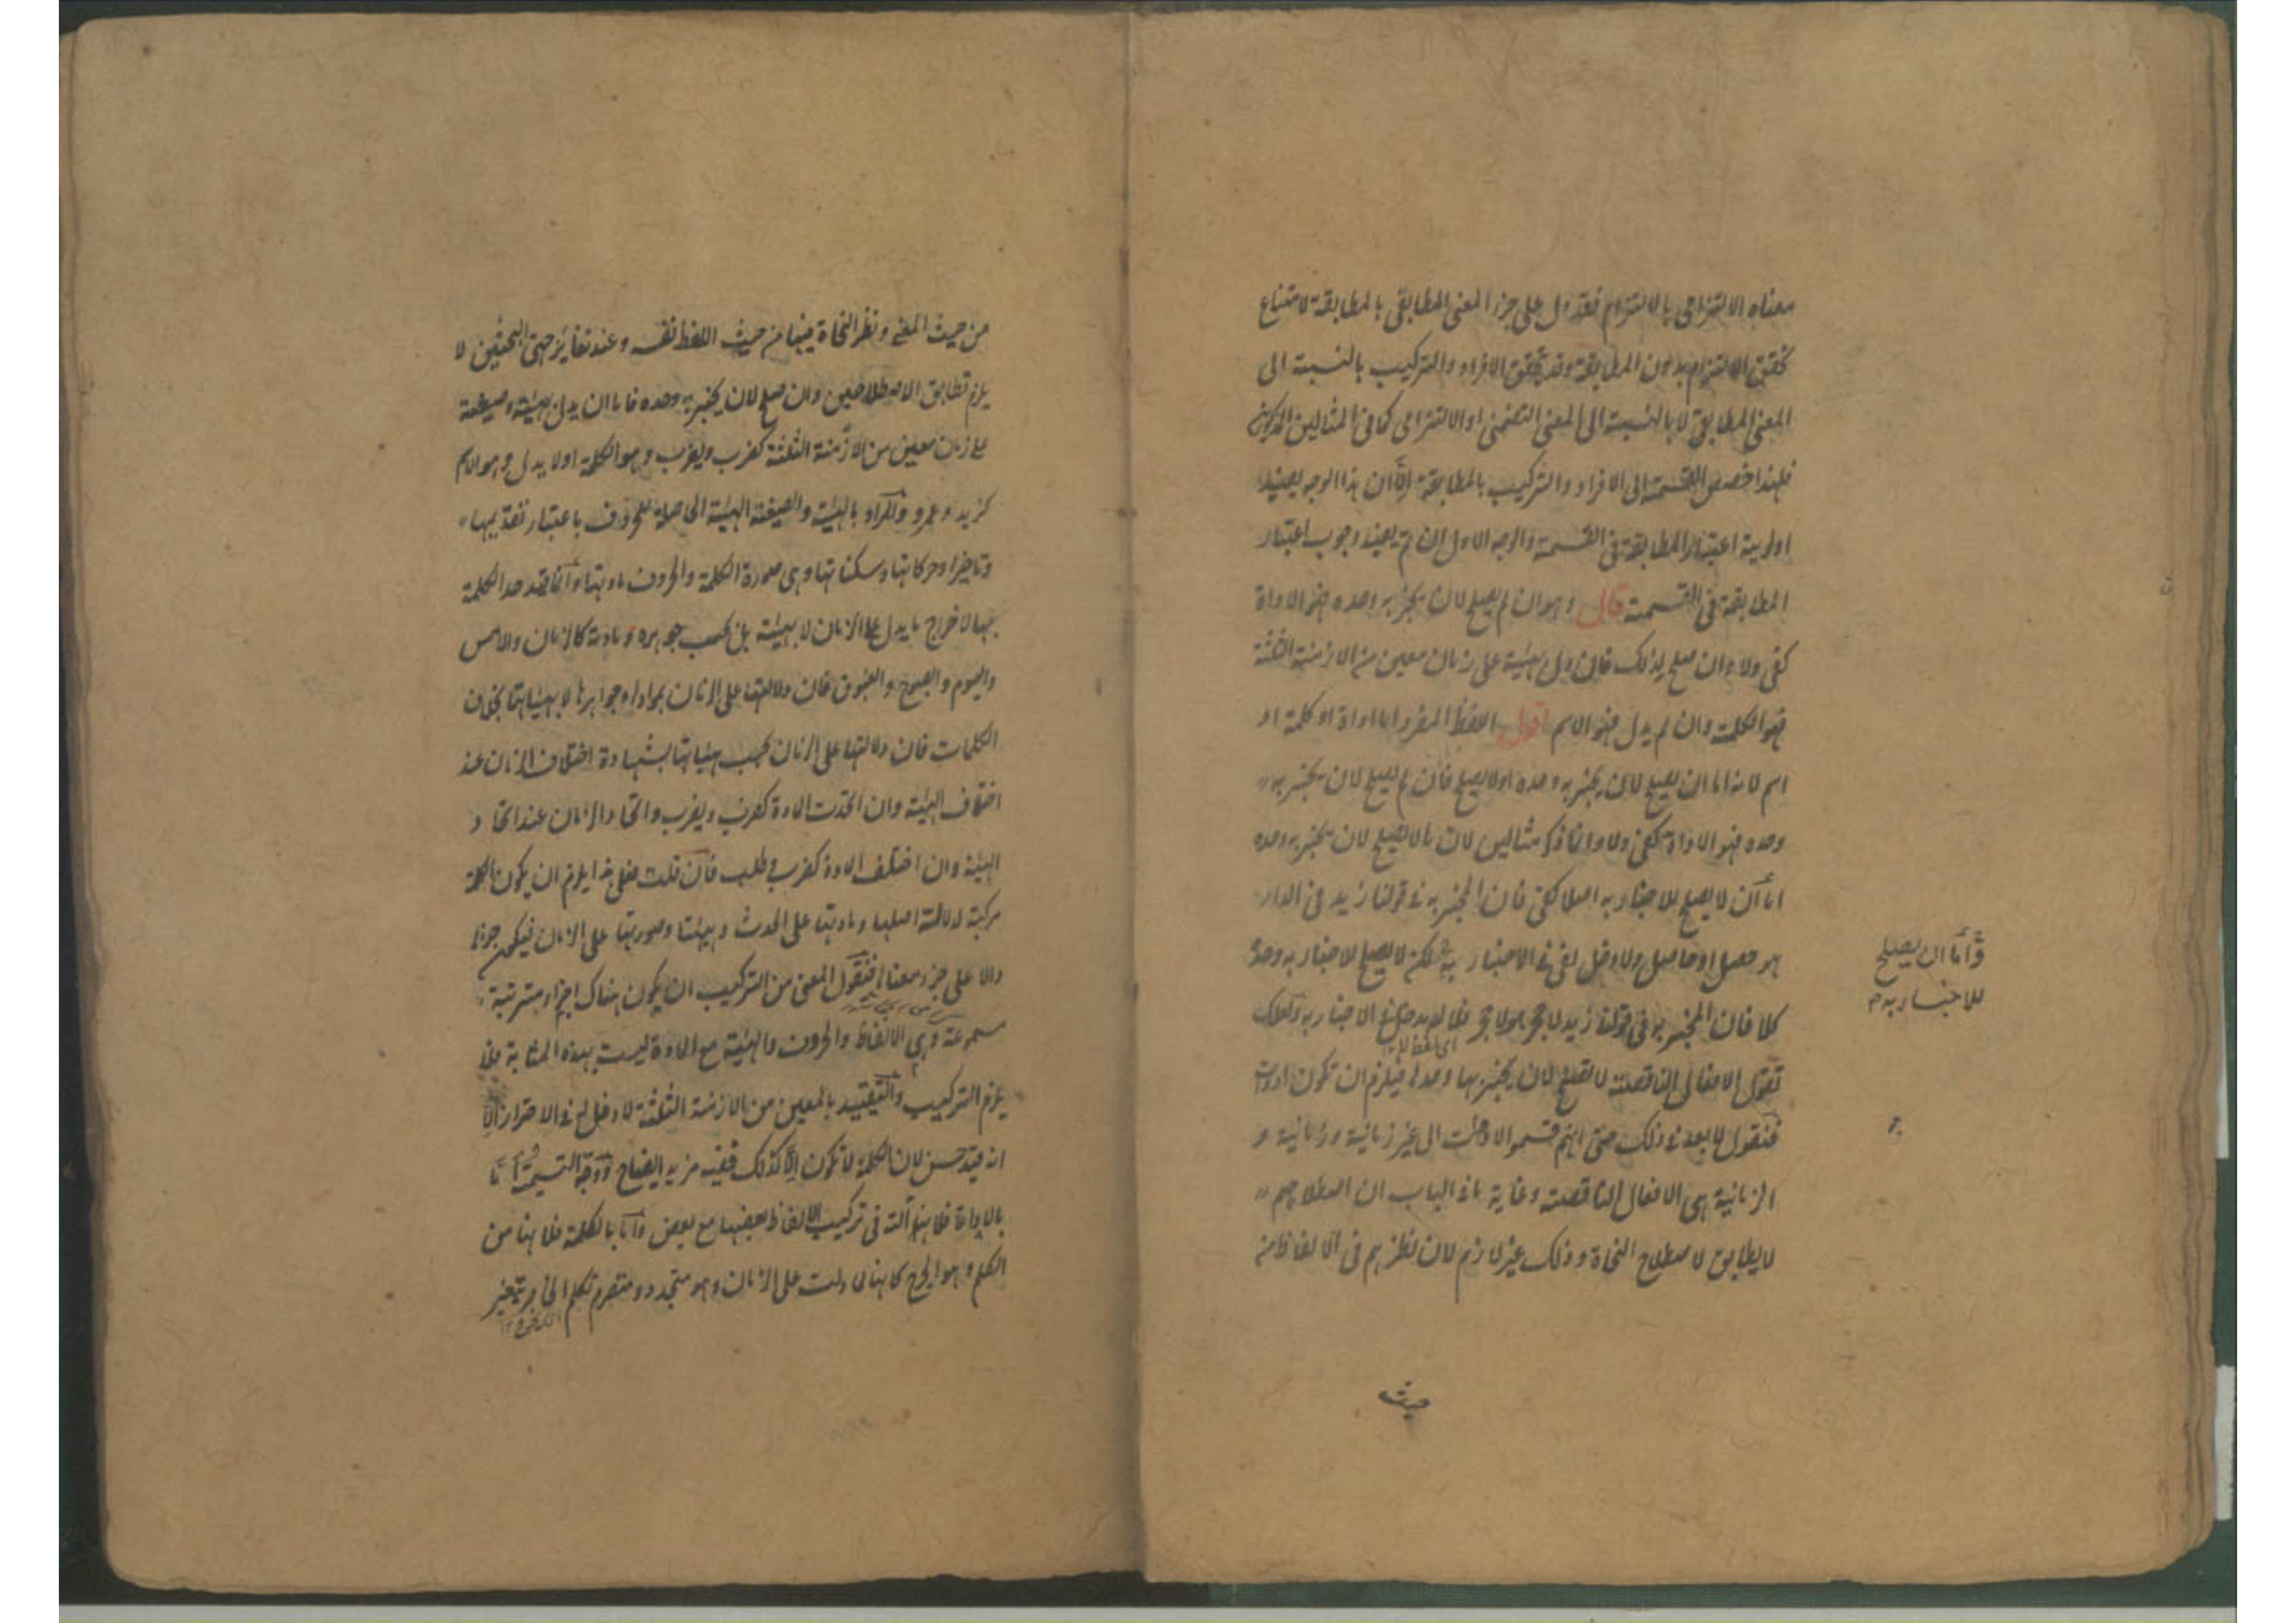 معناه الالتزامى بالالتزام فقد دل على جزء المعنى المطابقى بالمطابقة لامتناع
تحقق الالتزام بدون المطابقة وقد تحقق الافراد والتركيب بالنسبة الى
المعنى المطابقى لا بالنسبة الى المعنى التضمنى او الالتزامى كما فى المثالين المذكورين
فلهذا خصص القسمة الى الافراد والتركيب بالمطابقة الا ان هذا الوجه يفيد
اولوية اعتبار المطابقة فى القسمة والوجه الاول ان تم يفيد وجوب اعتبار
المطابقة فى القسمة قال وهو ان لم يصلح لان يخبر به وحده فهو الاداة
كفى ولا وان صلح لذلك فان دل بهيئته على زمان معين من الازمنة الثلثة
فهو الكلمة وان لم يدل فهو الاسم اقول اللفظ المفرد اما اداة او كلمة او
اسم لانه اما ان يصلح لان يخبر به وحده او لا يصلح فان لم يصلح لان يخبر به
وحده فهو الاداة كفى ولا وانما ذكر مثالين لان ما لا يصلح لان يخبر به وحده
اما ان لا يصلح للاخبار به اصلا كفى فان المخبر به فى قولنا زيد فى الدار
هو حصل او حاصل ولا دخل لفى فى الاخبار به لكن لا يصلح للاخبار به وحده
واما ان يصلح
للاخبار به
كلا فان المخبر به فى قولنا زيد لا حجر هو لا حجر فلا له مدخل فى الاخبار به ولعلك
تقول الافعال الناقصة لا تصلح لان يخبر بها وحدها فيلزم ان تكون ادوات
فنقول لا بعد فى ذلك حتى انهم قسموا الادوات الى غير زمانية وزمانية و
الزمانية هى الافعال الناقصة وغاية ما فى الباب ان اصطلاحهم
لا يطابق لاصطلاح النحاة وذلك غير لازم لان نظرهم فى الالفاظ من
حيث
من حيث المعنى ونظر النحاة فيها من حيث اللفظ نفسه وعند تغاير جهتى البحثين لا
يلزم تطابق الاصطلاحين وان صلح لان يخبر به وحده فاما ان يدل بهيئته وصيغته
على زمان معين من الازمنة الثلثة كضرب ويضرب وهو الكلمة او لا يدل وهو الاسم
كزيد وعمرو والمراد بالهيئة والصيغة الهيئة الحاصلة للحروف باعتبار تقديمها
وتاخيرها وحركاتها وسكناتها وهى صورة الكلمة والحروف مادتها وانما قيد حد الكلمة
بها لاخراج ما يدل على الزمان لا بهيئته بل بحسب جوهره ومادته كالزمان والامس
واليوم والصبوح والغبوق فان دلالتها على الزمان بموادها وجواهرها لا بهيئاتها بخلاف
الكلمات فان دلالتها على الزمان بحسب هيئاتها بشهادة اختلاف الزمان عند
اختلاف الهيئة وان اتحدت المادة كضرب ويضرب واتحاد الزمان عند اتحاد
الهيئة وان اختلف المادة كضرب وطلب فان قلت فعلى هذا يلزم ان يكون الكلمة
مركبة لدلالة اصلها ومادتها على الحدث وهيئتها وصورتها على الزمان فيكون جزؤها
دالا على جزء معناها فنقول المعنى من التركيب ان يكون هناك اجزاء مترتبة
مسموعة وهى الالفاظ والحروف والهيئة مع المادة ليست بهذه المثابة فلا
يلزم التركيب والتقييد بالمعين من الازمنة الثلثة لا دخل له فى الاحتراز الا
انه قيد حسن لان الكلمة لا تكون الا كذلك ففيه مزيد ايضاح ووجه التسمية اما
بالاداة فلانها آلة فى تركيب الالفاظ بعضها مع بعض واما بالكلمة فلانها من
الكلم وهو الجرح كانها لما دلت على الزمان وهو متجدد ومنصرم تكلم الخاطر بتغير